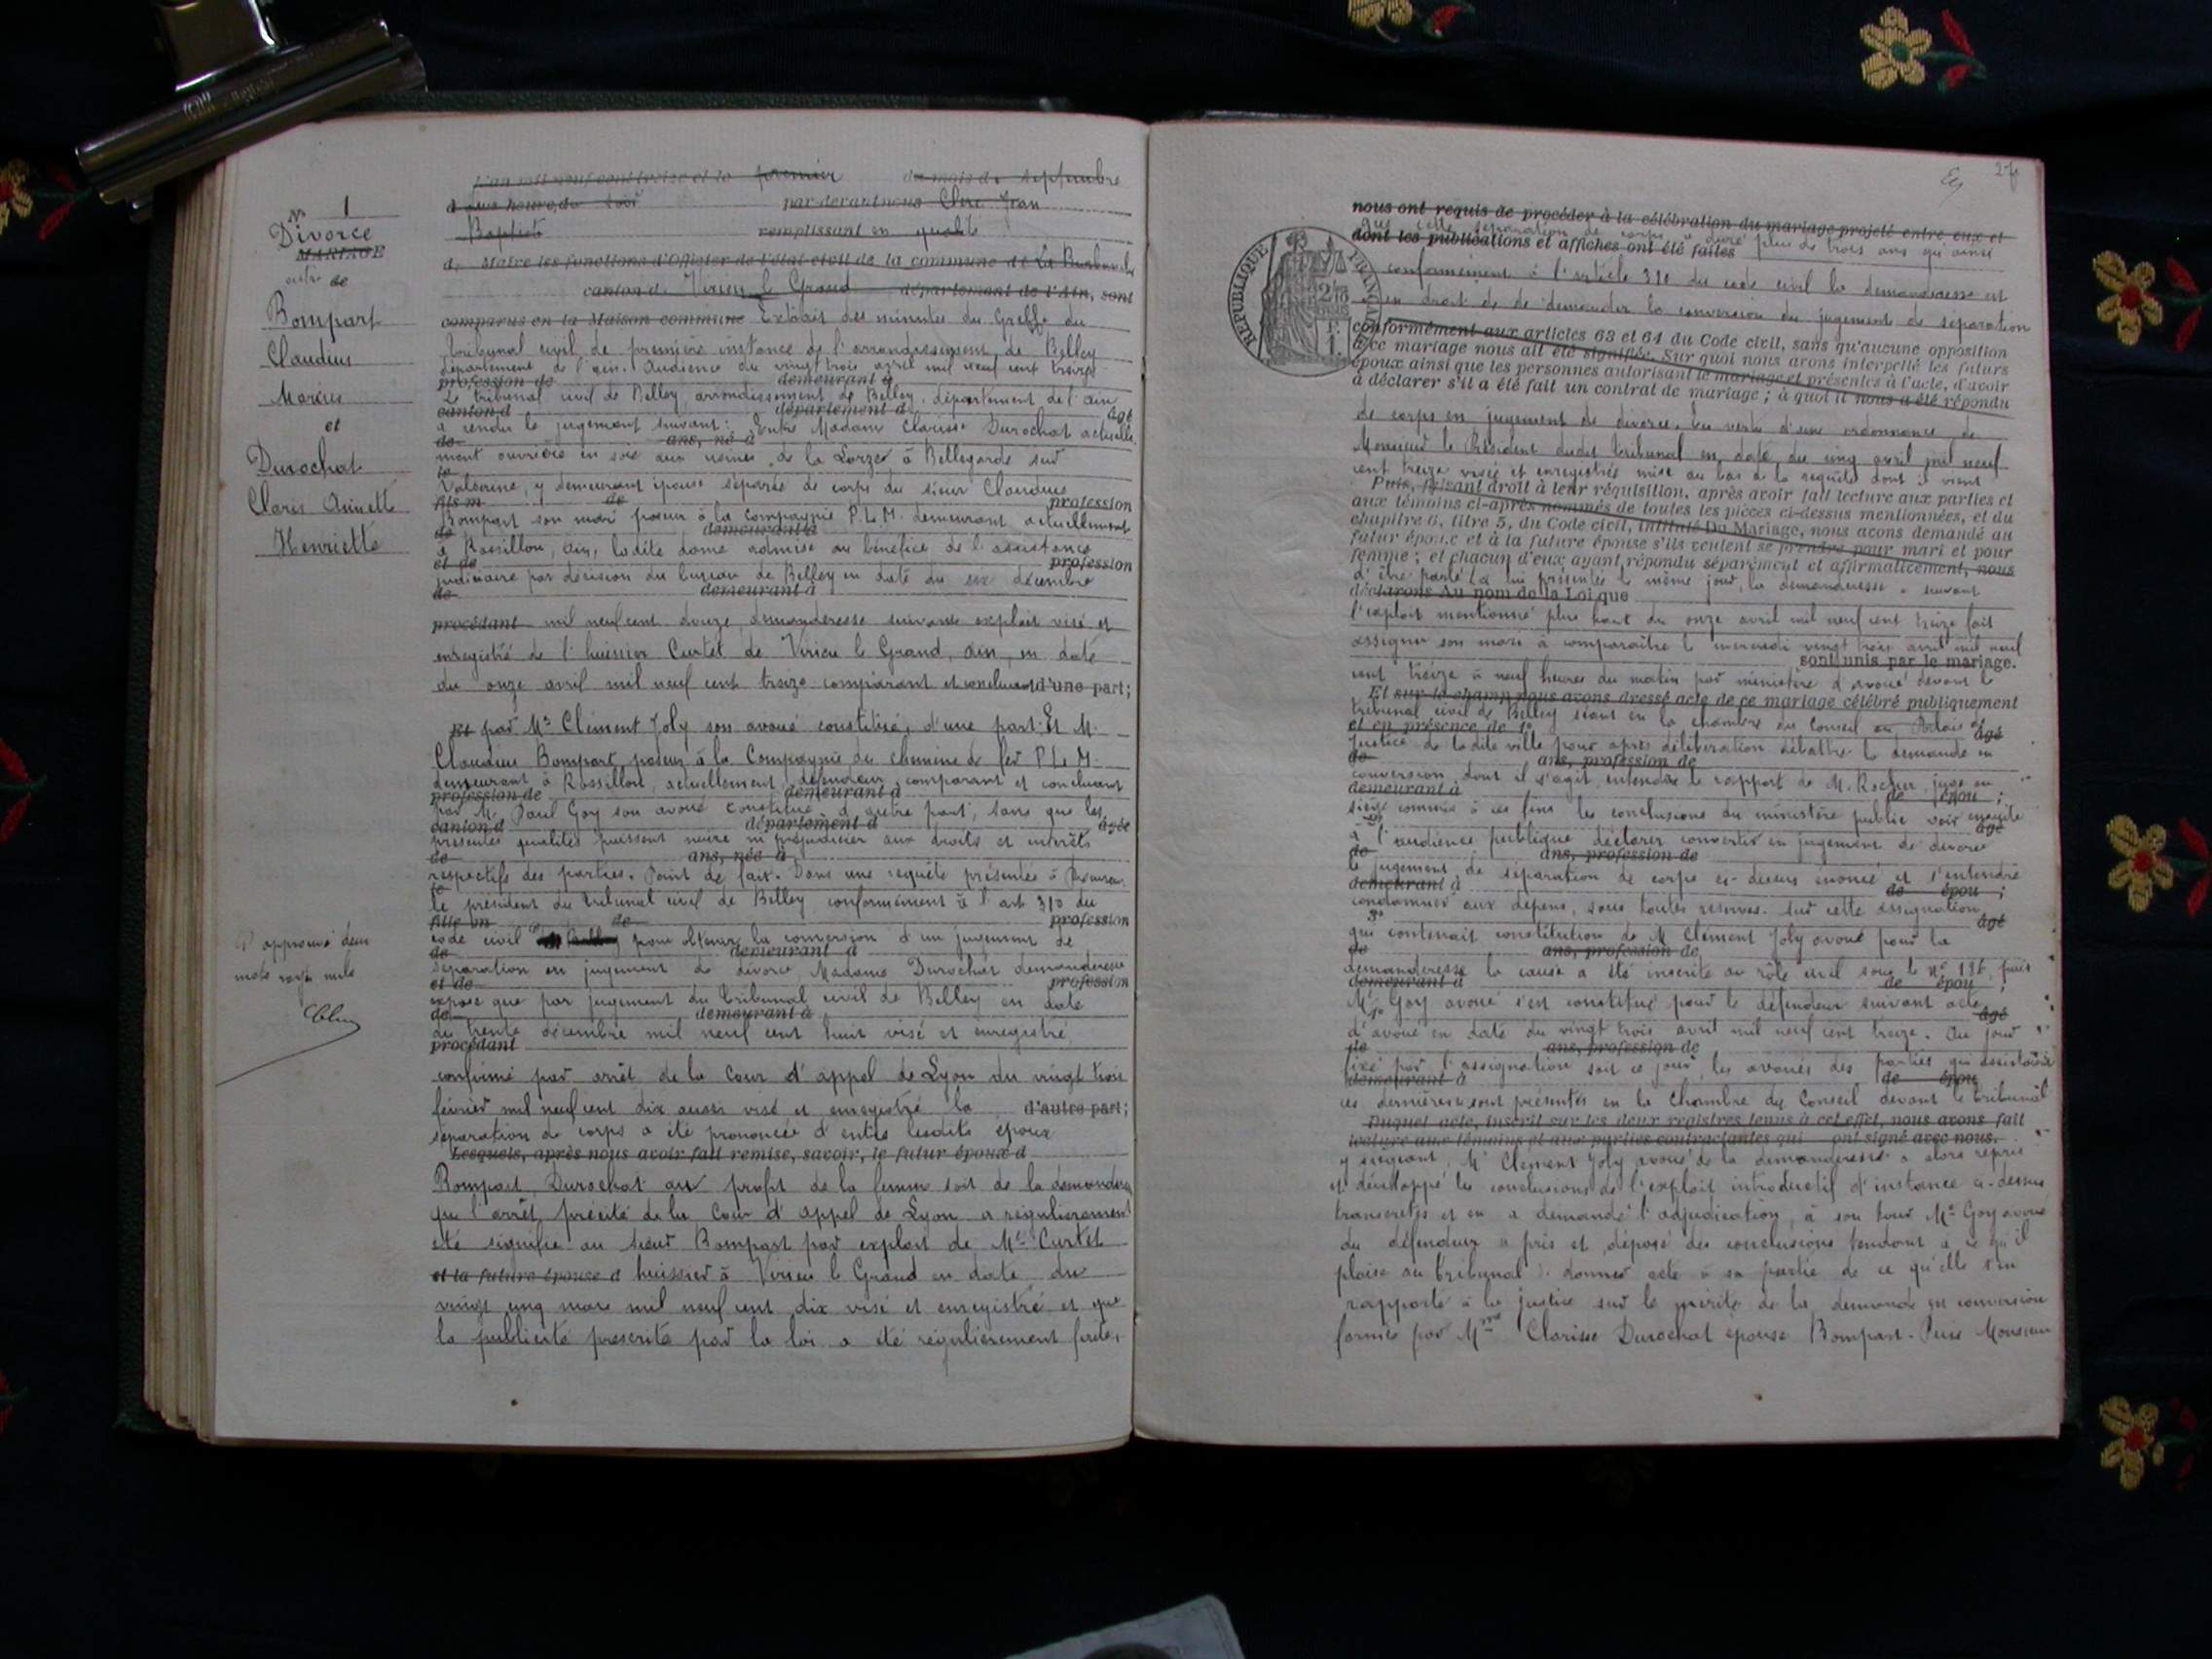 N° 1
Divorce
MARIAGE
entre de
Bompart
Claudius
Marius
et
Durochat
Claris Annette
Henriette
approuvé deux
mots rayés nuls
L'an mil neuf cent treize et le premier du mois de septembre
à deux heures du soir par devant nous Clerc Jean
Baptiste remplissant en qualité
de Maire les fonctions d'Officier de l'état civil de la commune de La Burbanche
canton de Virieu le Grand département de l'Ain, sont
comparus en la Maison commune Extrait des minutes du Greffe du
tribunal civil de première instance de l'arrondissement de Belley
département de l'ain. Audience du vingt trois avril mil neuf cent treize
profession de demeurant à
Le tribunal civil de Belley, arrondissement de Belley, département de l'ain
canton d département d âgé
a rendu le jugement suivant: Entre Madame Clarisse Durochat actuelle
de ans, né à
ment ouvrière en soie aux usines de la Lorze, à Bellegarde sur
le
Valserine, y demeurant épouse séparée de corps du sieur Claudius
fils m de profession
Bompart son mari poseur à la compagnie P.L.M. demeurant actuellement
de demeurant à
à Rossillon, ain, ladite dame admise au bénéfice de l'assistance
et de profession
judiciaire par décision du bureau de Belley en date du six décembre
de demeurant à
procédant mil neuf cent douze, demanderesse suivant exploit visé et
enregistré de l'huissier Curtet de Virieu le Grand, ain, en date
du onze avril mil neuf cent treize comparant et concluant d'une part;
Et par Me Clément Joly son avoué constitué, d'une part. Et M.
Claudius Bompart, poseur à la Compagnie des chemins de fer P.L.M.
demeurant à Rossillon, actuellement, défendeur, comparant et concluant
profession de demeurant à
par Me Paul Goy son avoué constitué d'autre part, sans que les
canton d département d âgée
présentes qualités puissent nuire ni préjudicier aux droits et intérêts
de ans, née à
respectifs des parties. Point de fait. Dans une requête présentée à Monsieur
le
le président du tribunal civil de Belley, conformément à l'art 310 du
fille m de profession
code civil pour obtenir la conversion d'un jugement de
de demeurant à
séparation en jugement de divorce, Madame Durochat demanderesse
et de profession
expose que par jugement du tribunal civil de Belley en date
de demeurant à
du trente décembre mil neuf cent huit visé et enregistré
procédant
confirmé par arrêt de la Cour d'appel de Lyon du vingt trois
février mil neuf cent dix aussi visé et enregistré la d'autre part;
séparation de corps a été prononcée d'entre lesdits époux
Lesquels, après nous avoir fait remise, savoir, le futur époux d
Bompart, Durochat au profit de la femme soit de la demanderesse
que l'arrêt précité de la Cour d'appel de Lyon a régulièrement
été signifié au sieur Bompart par exploit de Me Curtet
et la future épouse d huissier à Virieu le Grand en date du
vingt cinq mars mil neuf cent dix visé et enregistré et que
la publicité prescrite par la loi a été régulièrement faite,
27
nous ont requis de procéder à la célébration du mariage projeté entre eux et
que cette séparation de corps a duré plus de trois ans qu'ainsi
dont les publications et affiches ont été faites
conformément à l'article 310 du code civil la demanderesse est
en droit de de demander la conversion du jugement de séparation
RÉPUBLIQUE FRANÇAISE
conformément aux articles 63 et 64 du Code civil, sans qu'aucune opposition
à ce mariage nous ait été signifiée. Sur quoi nous avons interpellé les futurs
époux ainsi que les personnes autorisant le mariage et présentes à l'acte, d'avoir
à déclarer s'il a été fait un contrat de mariage ; à quoi il nous a été répondu
de corps en jugement de divorce. En vertu d'une ordonnance de
Monsieur le Président dudit tribunal en date du cinq avril mil neuf
cent treize visée et enregistrée mise au bas de la requête dont il vient
Puis, faisant droit à leur réquisition, après avoir fait lecture aux parties et
aux témoins ci-après nommés de toutes les pièces ci-dessus mentionnées, et du
chapitre 6, titre 5, du Code civil, intitulé Du Mariage, nous avons demandé au
futur époux et à la future épouse s'ils veulent se prendre pour mari et pour
femme ; et chacun d'eux ayant répondu séparément et affirmativement, nous
d'être parlé à lui présentée le même jour, la demanderesse a suivant
déclarons Au nom de la Loi que
l'exploit mentionné plus haut du onze avril mil neuf cent treize fait
assigner son mari à comparaître le mercredi vingt trois avril mil neuf
sont unis par le mariage.
cent treize à neuf heures du matin par ministère d'avoué devant le
Et sur le champ nous avons dressé acte de ce mariage célébré publiquement
tribunal civil de Belley séant en la chambre du Conseil au Palais de
et en présence de 1° âgé
Justice de ladite ville pour après délibération débattre la demande en
de ans, profession de
conversion dont il s'agit, entendre le rapport de M. Rocher, juge en
demeurant à de épou ;
siège commis à ces fins les conclusions du ministère public voir ensuite
2° âgé
à l'audience publique déclarer convertir en jugement de divorce
de ans, profession de
le jugement de séparation de corps ci-dessus énoncé et s'entendre
demeurant à de épou ;
condamner aux dépens, sous toutes réserves. Sur cette assignation
3° âgé
qui contenait constitution de Me Clément Joly avoué pour la
de ans, profession de
demanderesse la cause a été inscrite au rôle civil sous le n° 196, puis
demeurant à de épou ;
Me Goy avoué s'est constitué pour le défendeur suivant acte
4° âgé
d'avoué en date du vingt trois avril mil neuf cent treize. Au jour
de ans, profession de
fixé par l'assignation soit ce jour, les avoués des parties qui assistaient
demeurant à de épou
ces dernières se sont présentés en la Chambre du Conseil devant le tribunal
Duquel acte, inscrit sur les deux registres tenus à cet effet, nous avons fait
lecture aux témoins et aux parties contractantes qui ont signé avec nous.
y siégeant, Me Clément Joly avoué de la demanderesse a alors repris
et développé les conclusions de l'exploit introductif d'instance ci-dessus
transcrites et en a demandé l'adjudication, à son tour Me Goy avoué
du défendeur a pris et déposé des conclusions tendant à ce qu'il
plaise au tribunal donner acte à sa partie de ce qu'elle s'en
rapporte à la justice sur le mérite de la demande en conversion
formée par Mme Clarisse Durochat épouse Bompart. Puis Monsieur